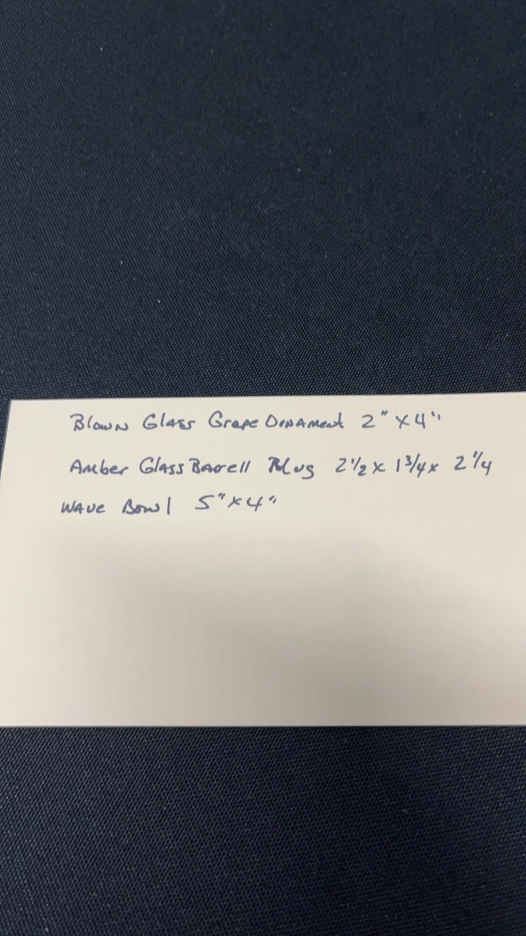 Blown Glass Grape Ornament 2" x 4"
Amber Glass Barell Mug 2 1/2 x 1 3/4 x 2 1/4
Wave Bowl 5" x 4"